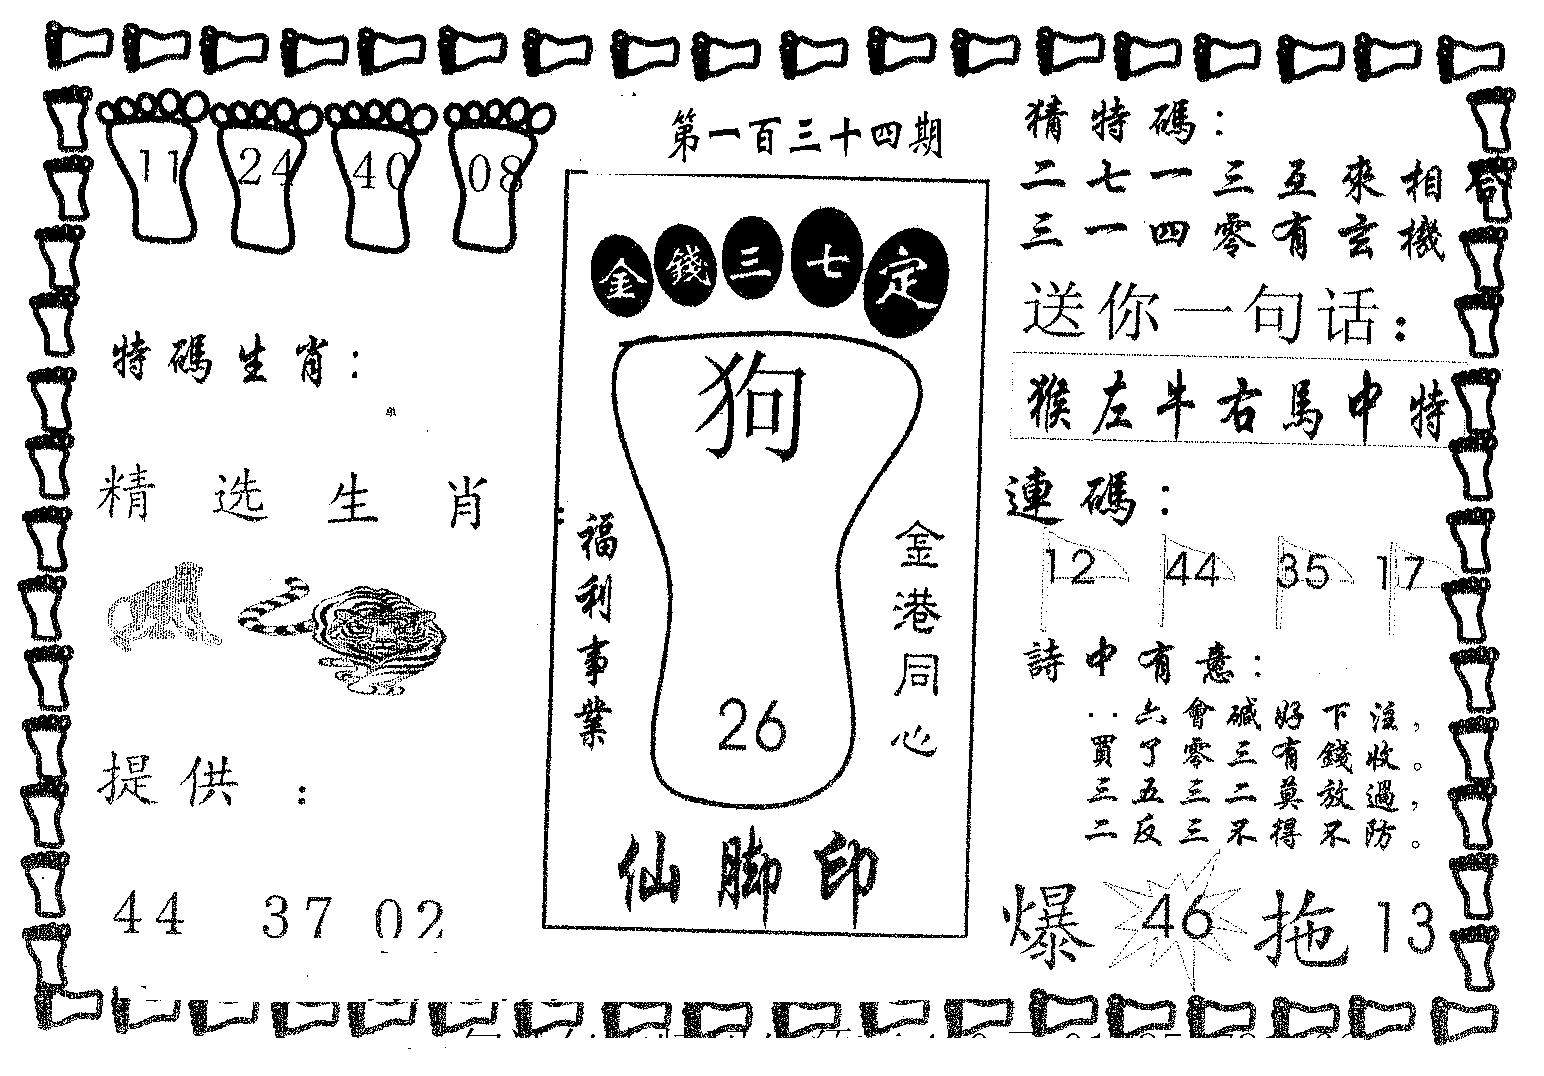 第一百三十四期
11 24 40 08
特碼生肖：
单
精选生肖：
提供：
44 37 02
金錢三七定
狗
福利事業
金港同心
26
仙脚印
猜特碼：
二七一三互來相
三一四零有玄機
送你一句话：
猴左牛右馬中特
連碼：
12 44 35 17
詩中有意：
六會碱好下注，
買了零三有錢收。
三五三二莫放過，
二反三不得不防。
爆 46 拖 13